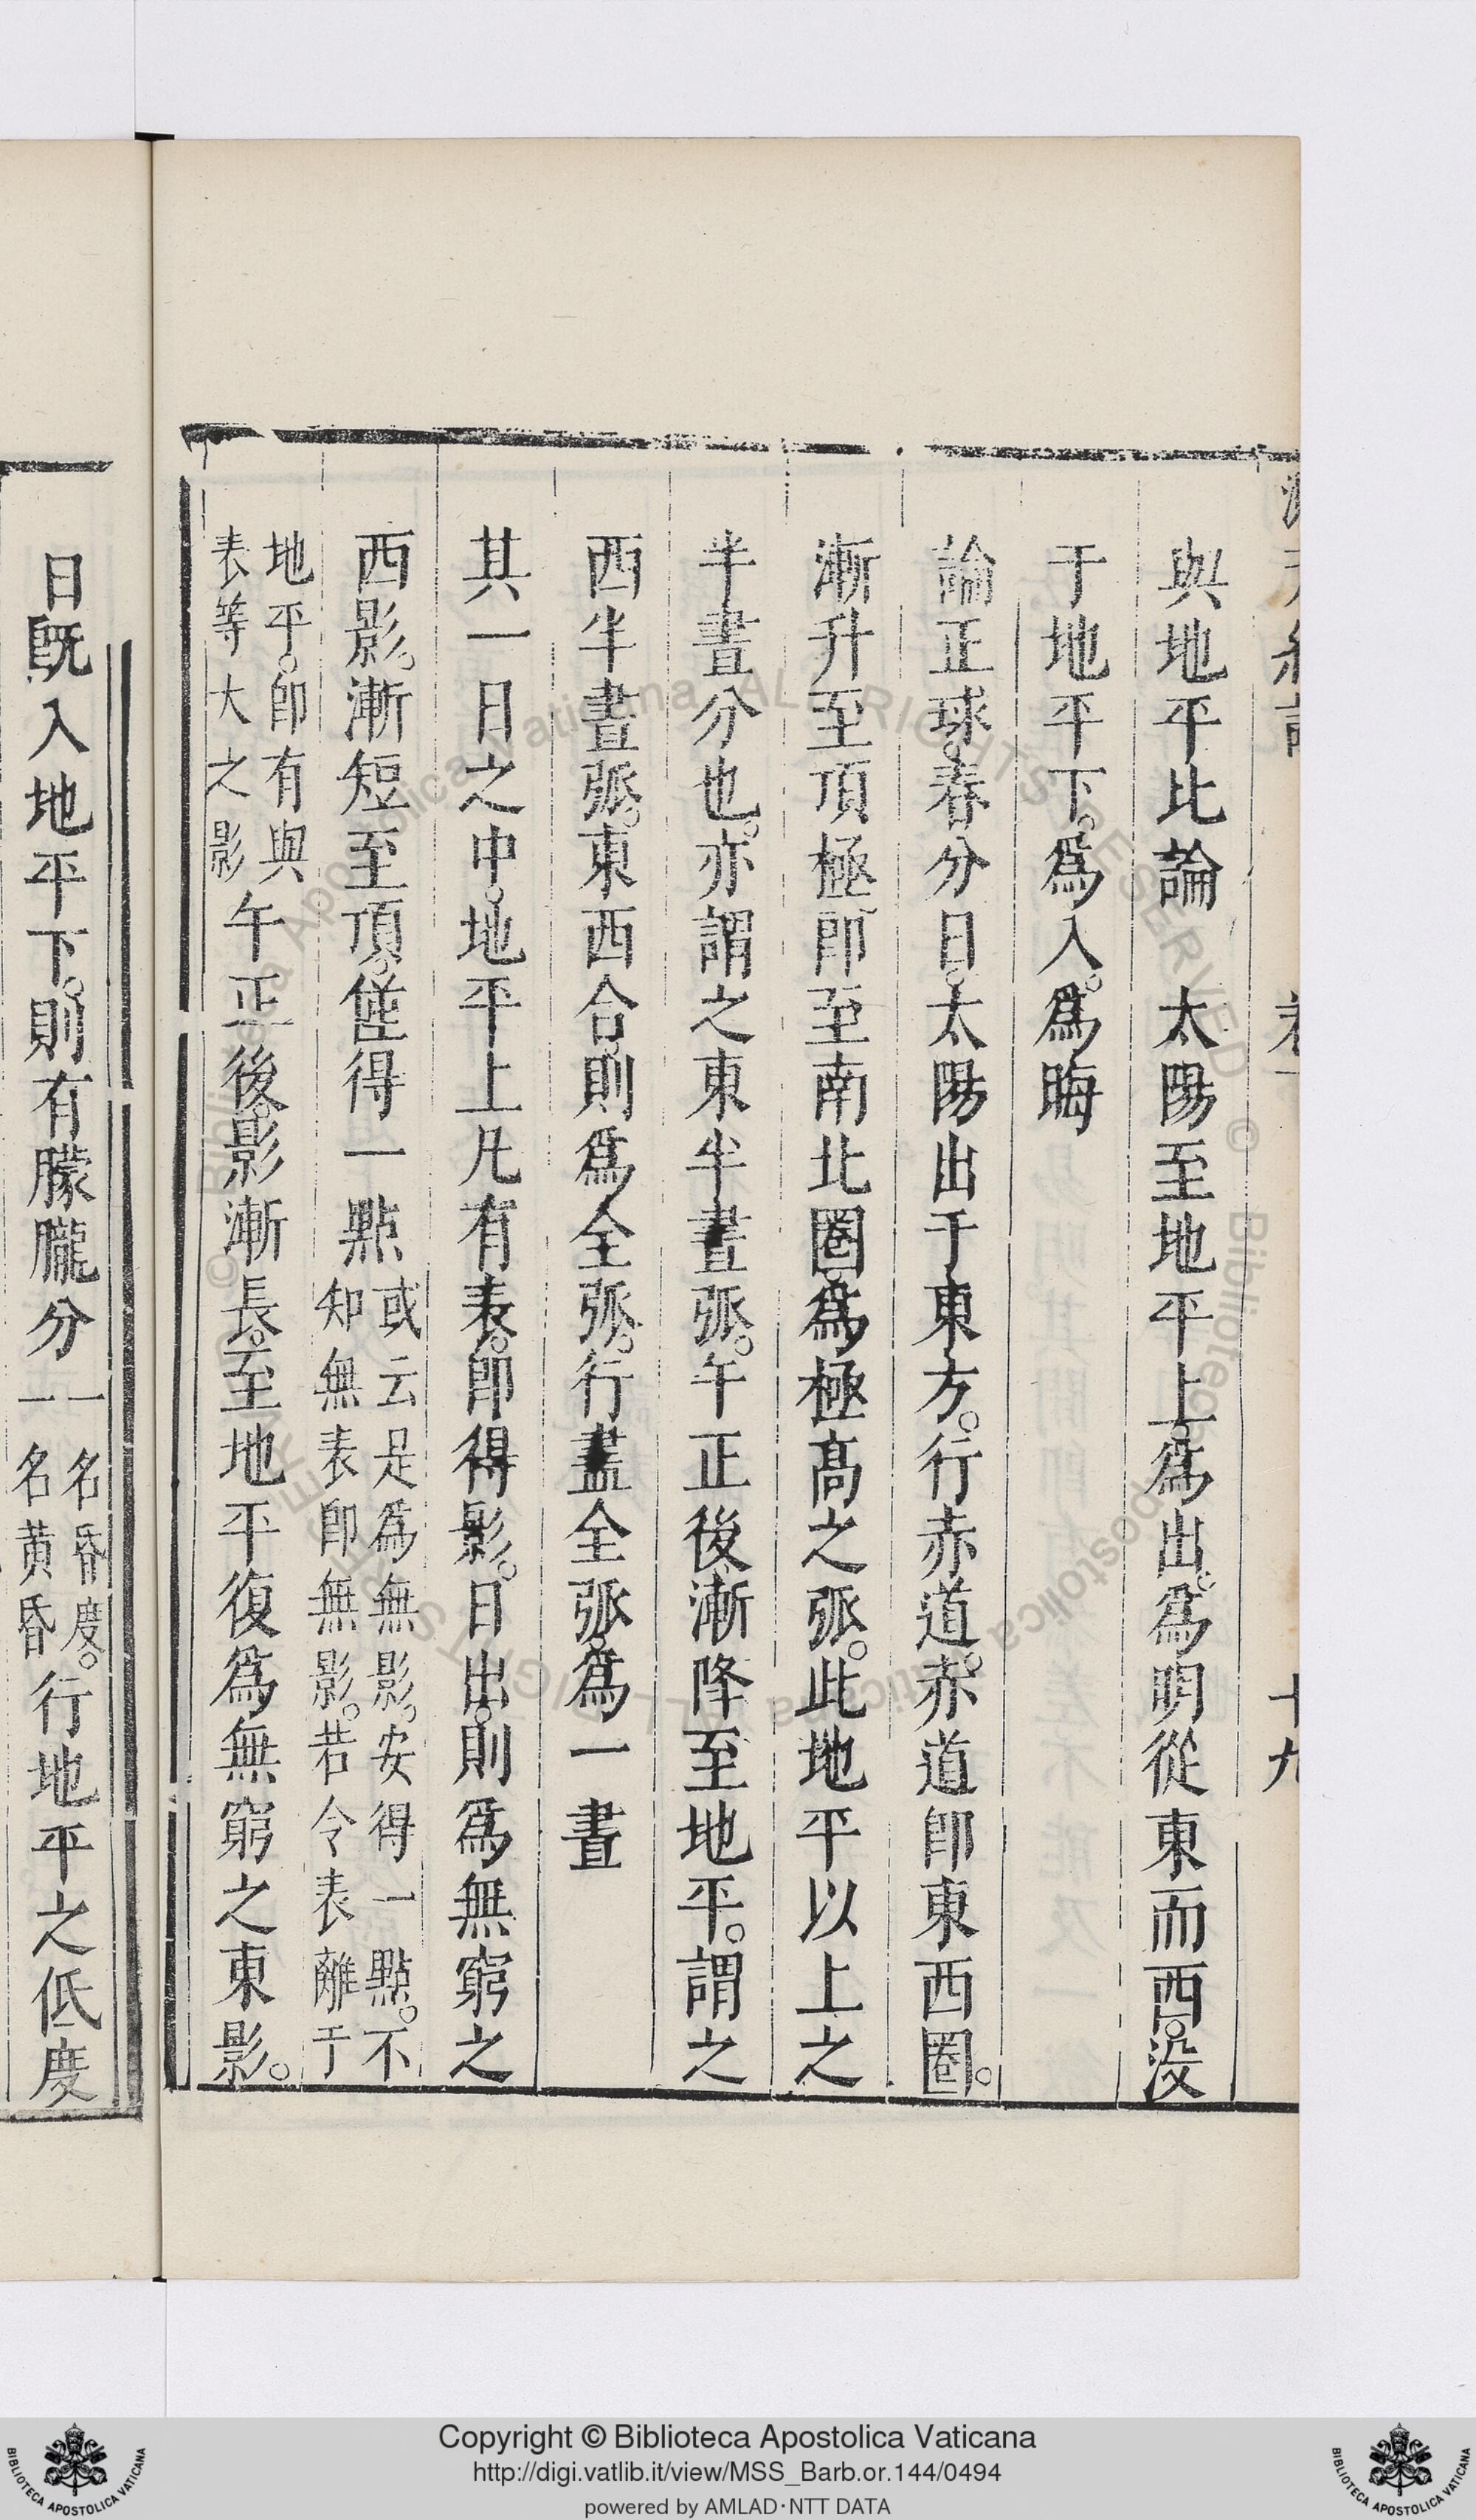 與地平比論　太陽至地平上。爲出。爲明從東而西。没
于地平下。爲入。爲晦
論正球。春分日。太陽出于東方。行赤道。赤道卽東西圈。
漸升至頂極卽至南北圈。爲極高之弧。此地平以上之
半晝分也。亦謂之東半晝弧。午正後漸降至地平。謂之
西半晝弧。東西合。則爲全弧。行盡全弧。爲一晝
其一日之中。地平上凡有表。卽得影。日出。則爲無窮之
西影。漸短至頂。僅得一點或云是爲無影。安得一點。不
知無表卽無影。若令表離于
地平。卽有與
表等大之影午正後。影漸長。至地平復爲無窮之東影。
日旣入地平下。則有朦朧分一名昏度。
一名黃昏行地平之低度
十九
Copyright © Biblioteca Apostolica Vaticana
http://digi.vatlib.it/view/MSS_Barb.or.144/0494
powered by AMLAD·NTT DATA
BIBLIOTECA APOSTOLICA VATICANA
BIBLIOTECA APOSTOLICA VATICANA